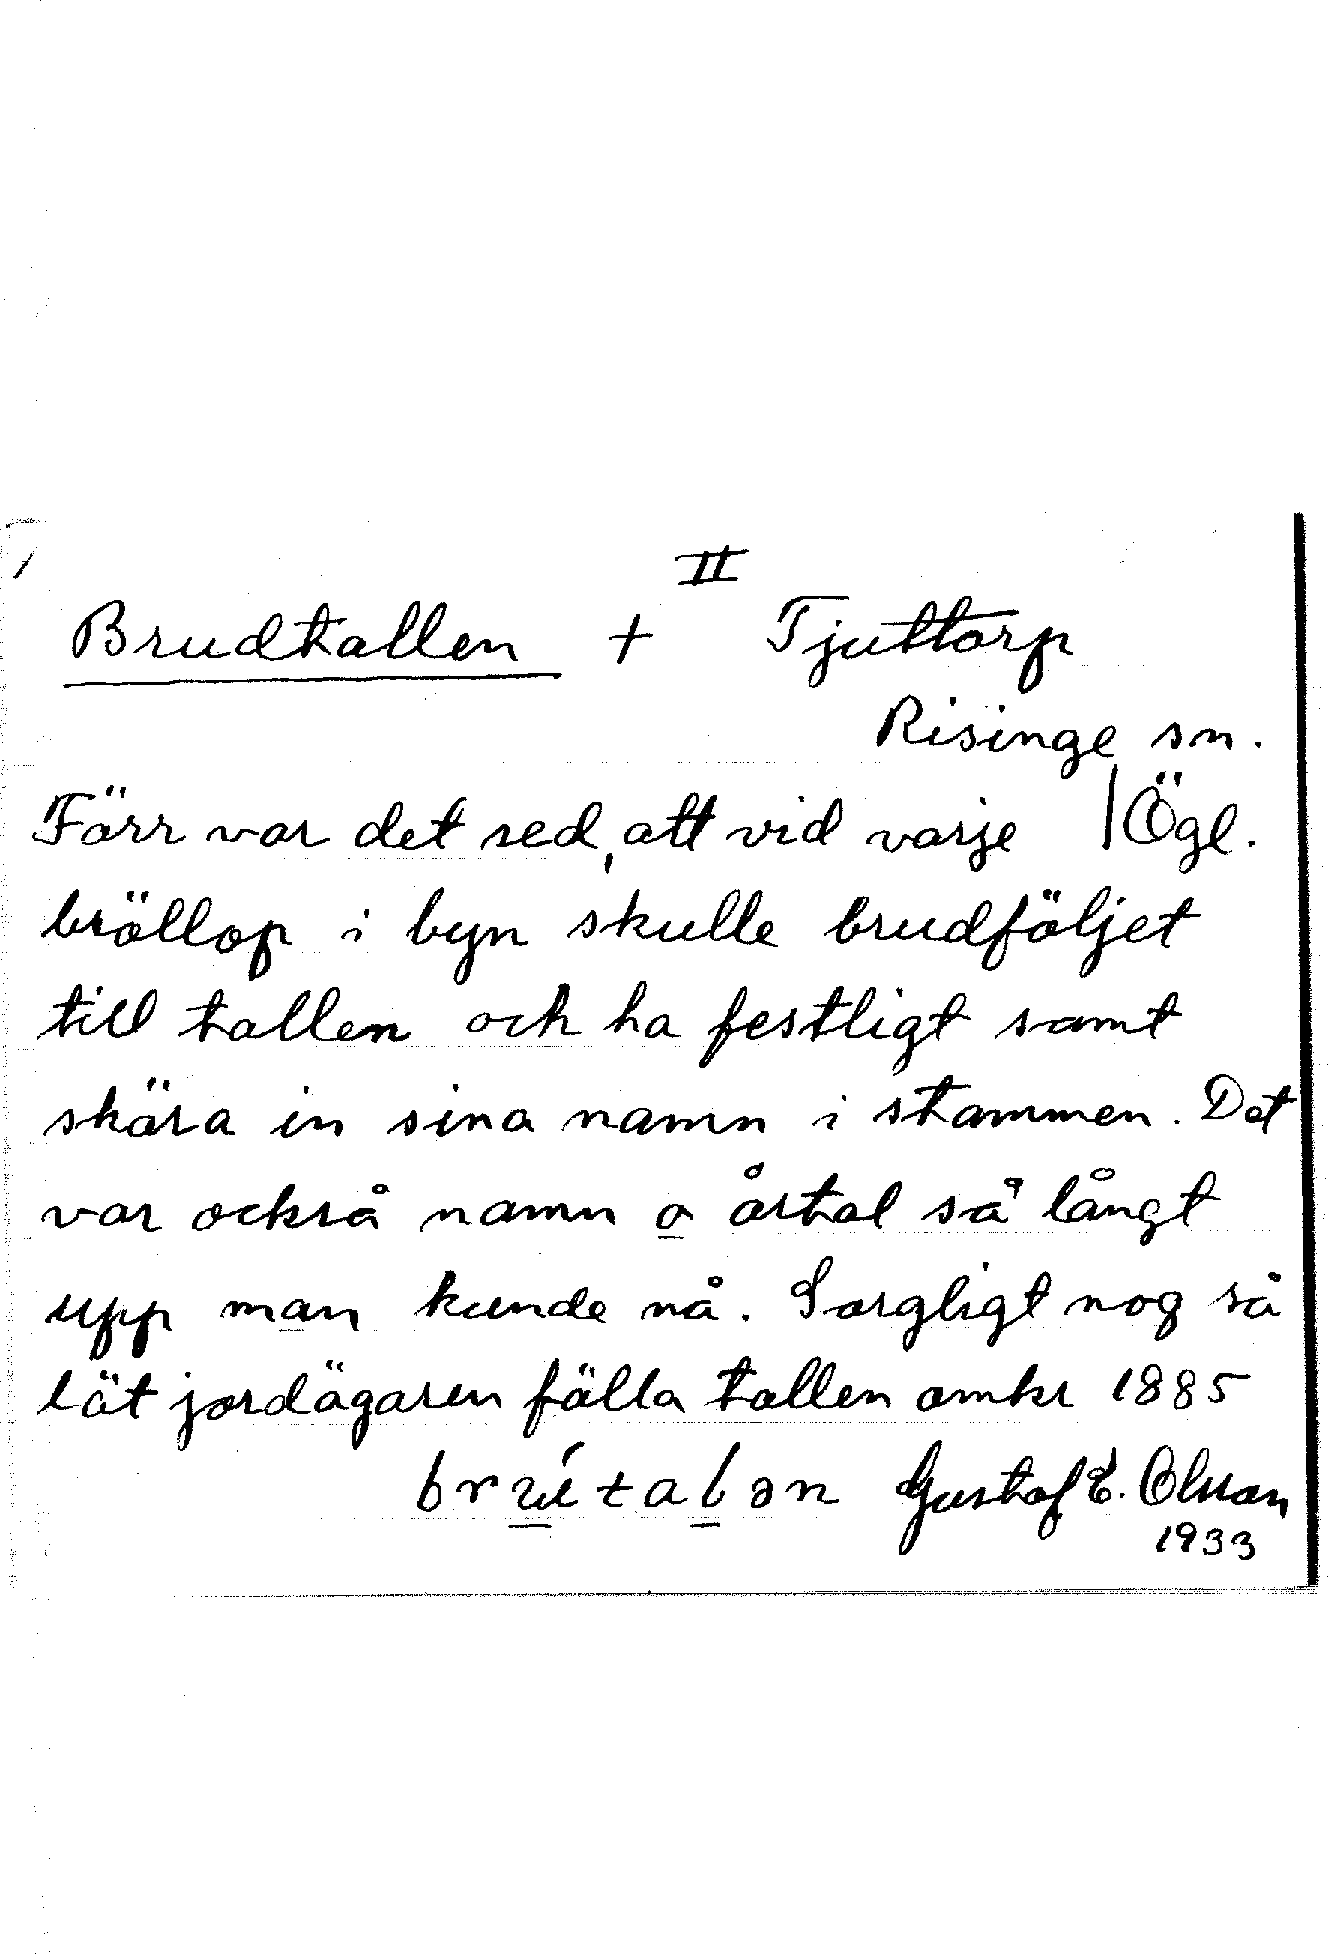 II
Brudtallen + Tjuttorp
Risinge sn.
Förr var det sed, att vid varje | Ögl.
bröllop i byn skulle brudföljet
till tallen och ha festligt samt
skära in sina namn i stammen. Det
var också namn o årtal så långt
upp man kunde nå. Sorgligt nog så
lät jordägaren fälla tallen omkr 1885
Gustaf E. Olsson
1933